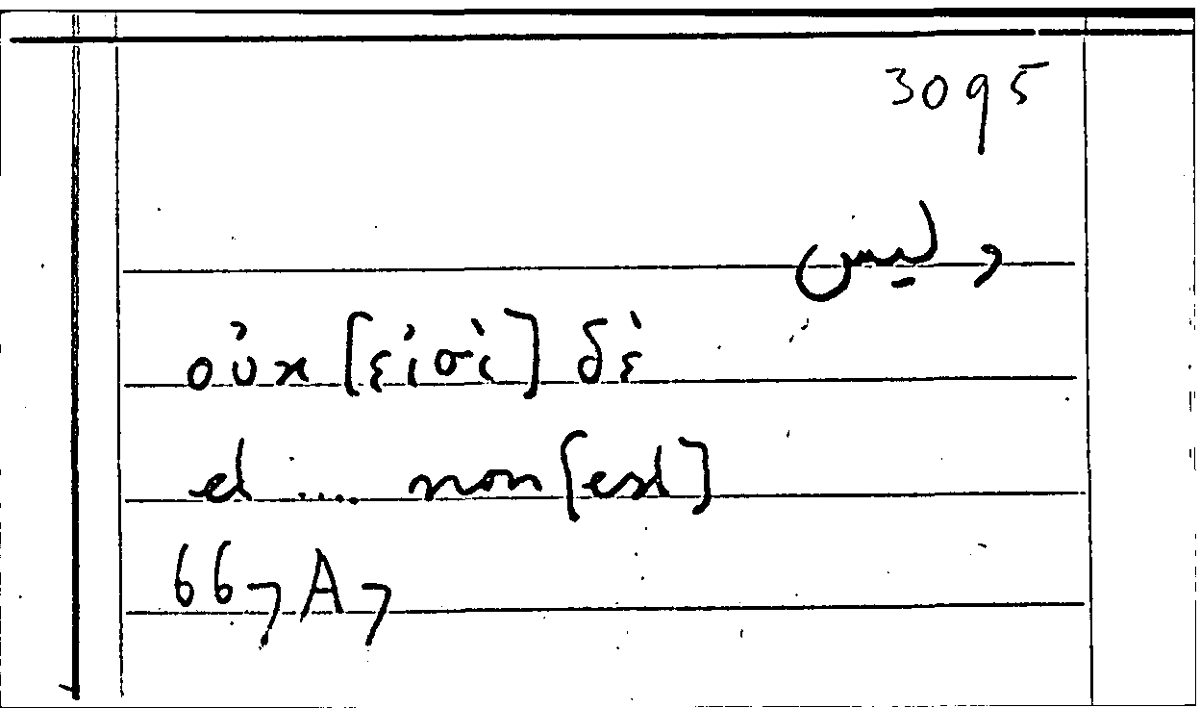 3095
وليس
οὐκ [εἰσὶ] δὲ
et .... non [est]
667A7